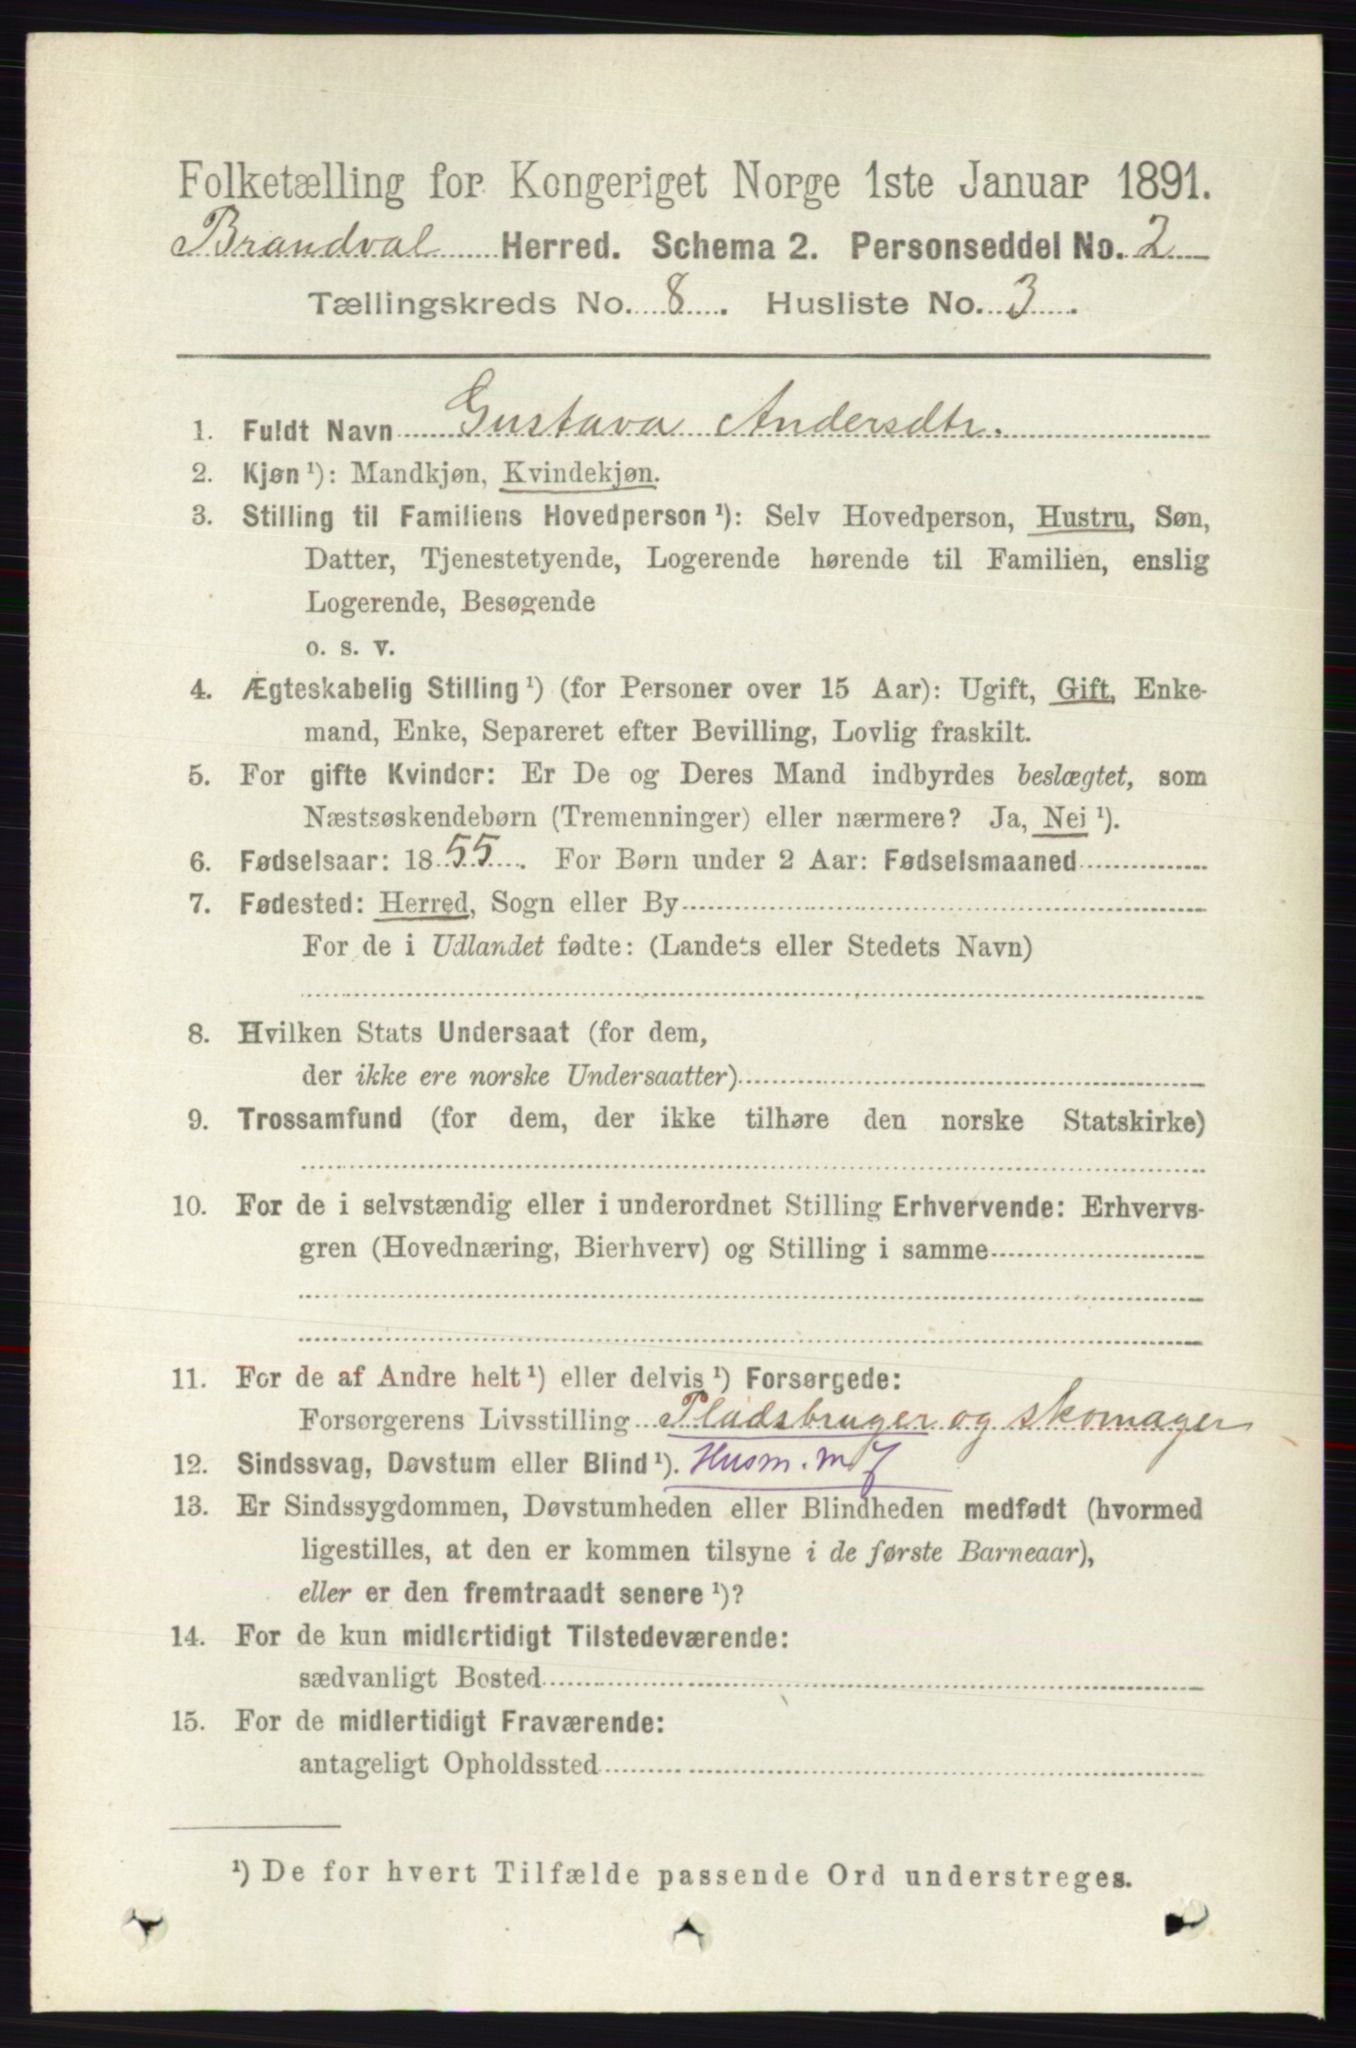 Folketælling for Kongeriget Norge 1ste Januar 1891.
Brandval Herred. Schema 2. Personseddel No. 2
Tællingskreds No. 8. Husliste No. 3.
1. Fuldt Navn Gustava Andersdtr.
2. Kjøn¹): Mandkjøn, Kvindekjøn.
3. Stilling til Familiens Hovedperson¹): Selv Hovedperson, Hustru, Søn,
Datter, Tjenestetyende, Logerende hørende til Familien, enslig
Logerende, Besøgende
o. s. v.
4. Ægteskabelig Stilling¹) (for Personer over 15 Aar): Ugift, Gift, Enke-
mand, Enke, Separeret efter Bevilling, Lovlig fraskilt.
5. For gifte Kvinder: Er De og Deres Mand indbyrdes beslægtet, som
Næstsøskendebørn (Tremenninger) eller nærmere? Ja, Nei¹).
6. Fødselsaar: 1855. For Børn under 2 Aar: Fødselsmaaned
7. Fødested: Herred, Sogn eller By
For de i Udlandet fødte: (Landets eller Stedets Navn)
8. Hvilken Stats Undersaat (for dem,
der ikke ere norske Undersaatter)
9. Trossamfund (for dem, der ikke tilhøre den norske Statskirke)
10. For de i selvstændig eller i underordnet Stilling Erhvervende: Erhvervs-
gren (Hovednæring, Bierhverv) og Stilling i samme
11. For de af Andre helt¹) eller delvis¹) Forsørgede:
Forsørgerens Livsstilling Pladsbruger og skomager
12. Sindssvag, Døvstum eller Blind¹). Husm. m J
13. Er Sindssygdommen, Døvstumheden eller Blindheden medfødt (hvormed
ligestilles, at den er kommen tilsyne i de første Barneaar),
eller er den fremtraadt senere¹)?
14. For de kun midlertidigt Tilstedeværende:
sædvanligt Bosted
15. For de midlertidigt Fraværende:
antageligt Opholdssted
¹) De for hvert Tilfælde passende Ord understreges.